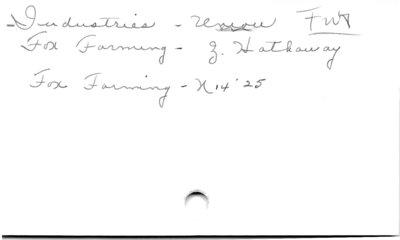 Industries - Union FWA
Fox Farming - Z. Hathaway
Fox Farming - N 14 '25